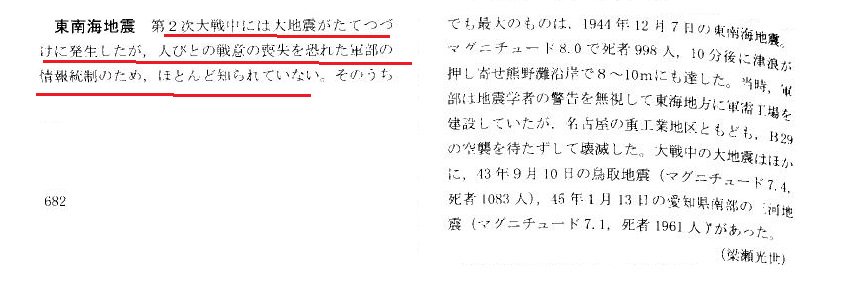 東南海地震　第2次大戦中には大地震がたてつづ
けに発生したが，人びとの戦意の喪失を恐れた軍部の
情報統制のため，ほとんど知られていない。そのうち
682
でも最大のものは，1944年12月7日の東南海地震。
マグニチュード8.0で死者998人，10分後に津浪が
押し寄せ熊野灘沿岸で8～10mにも達した。当時，軍
部は地震学者の警告を無視して東海地方に軍需工場を
建設していたが，名古屋の重工業地区ともども，B29
の空襲を待たずして壊滅した。大戦中の大地震はほか
に，43年9月10日の鳥取地震（マグニチュード7.4，
死者1083人），45年1月13日の愛知県南部の三河地
震（マグニチュード7.1，死者1961人）があった。
（梁瀬光世）